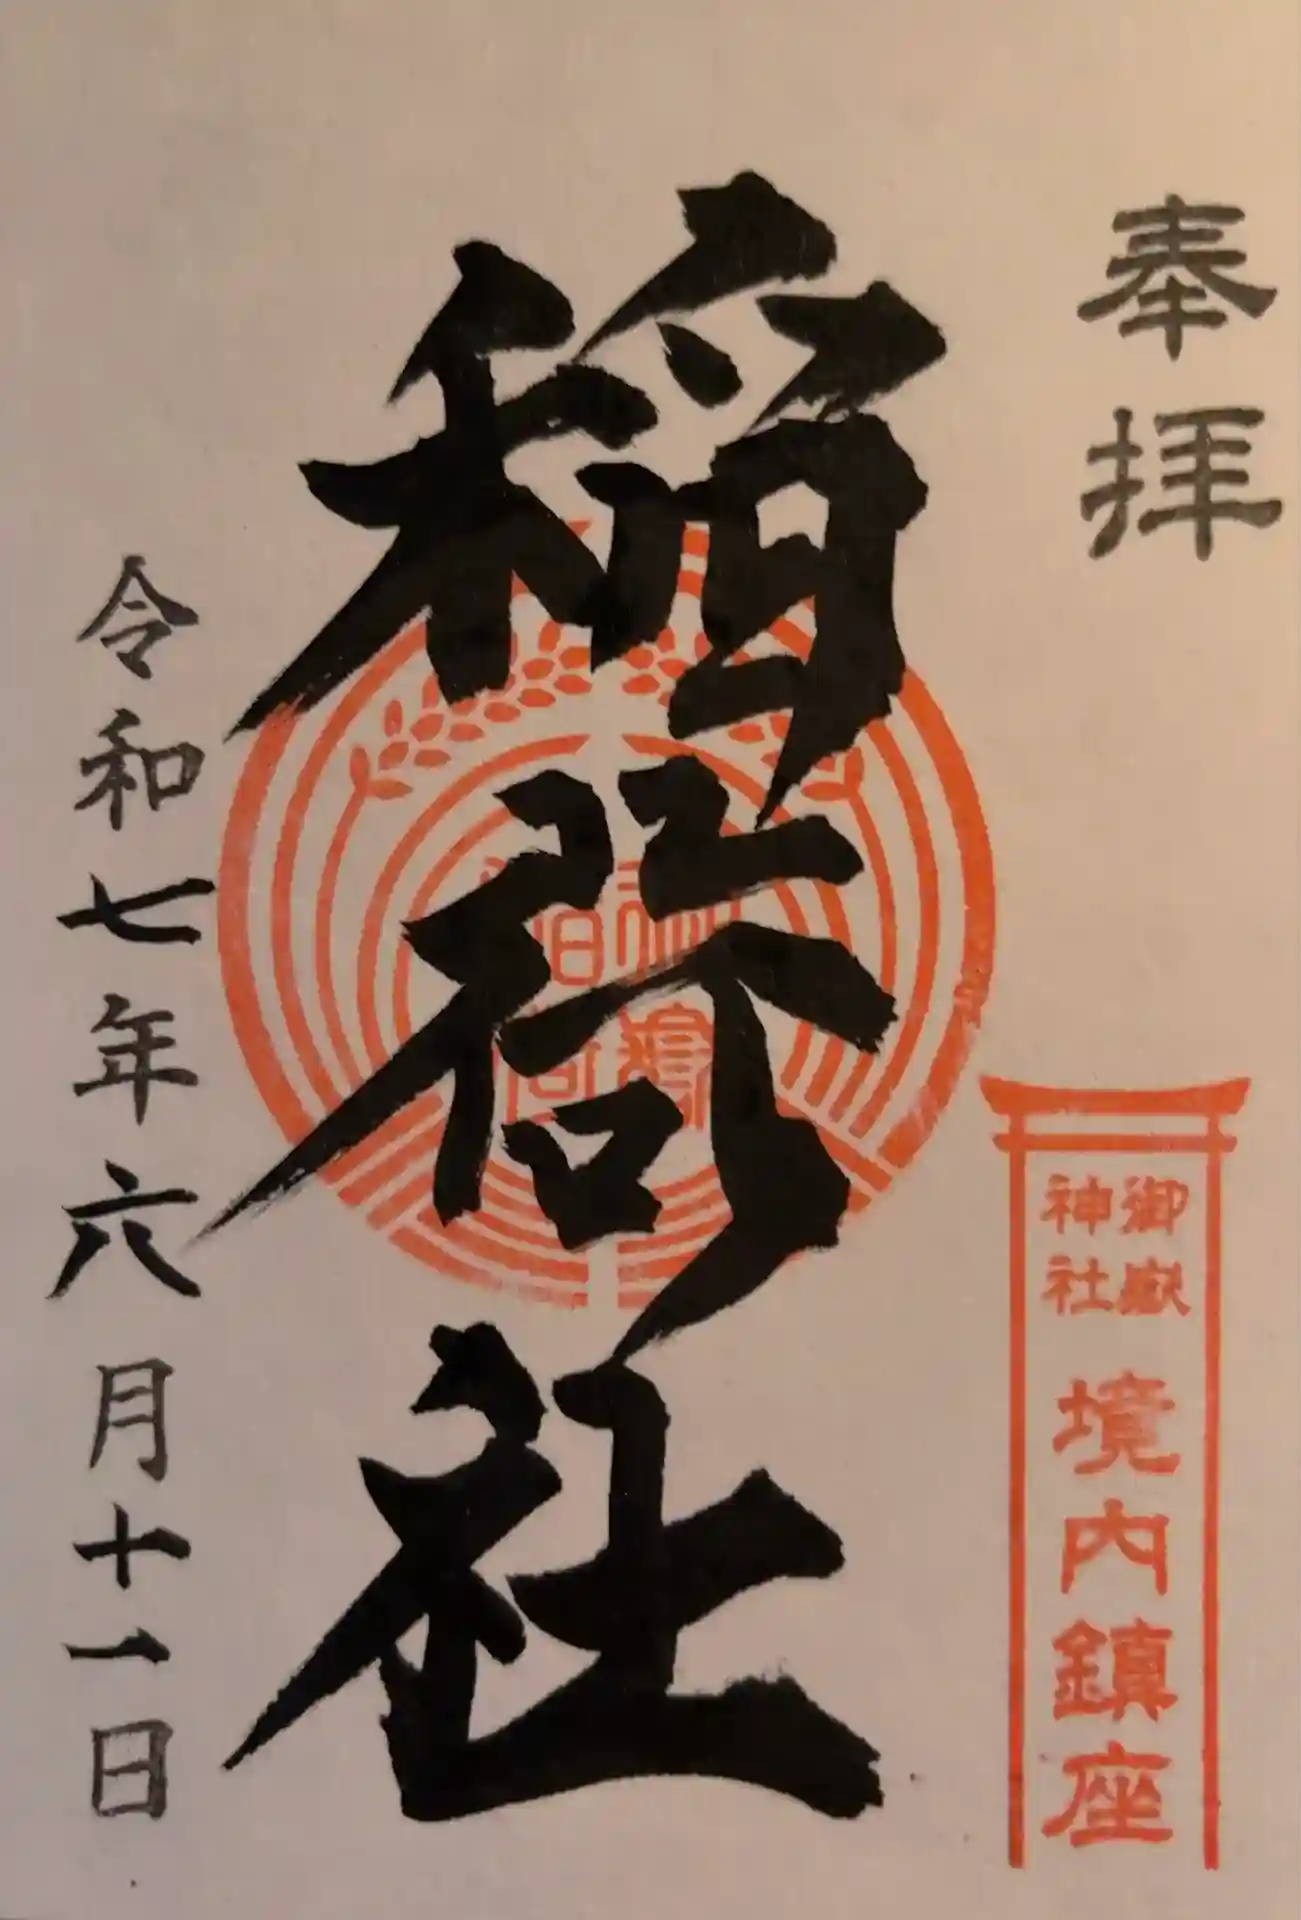 奉拝
御嶽
神社
境内鎮座
稲荷社
令和七年六月十一日